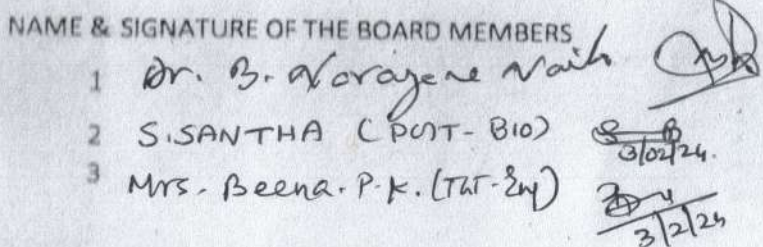 NAME & SIGNATURE OF THE BOARD MEMBERS
1 Dr. B. Narayene Naik
2 S.SANTHA (PGT-BIO) 3/02/24.
3 Mrs. Beena.P.K. (TGT-Eng) 3/2/24